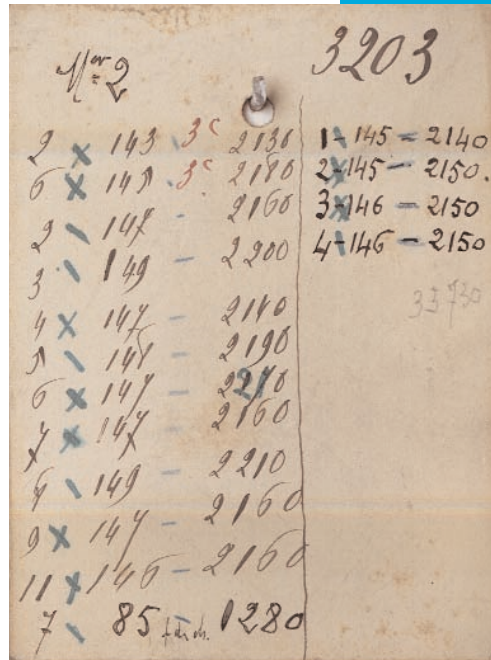 Nor 2
3203
2 x 143 - 3c 2130
6 x 145 - 3c 2180
2 \ 147 - 2160
3 \ 149 - 2200
4 x 147 - 2140
5 \ 148 - 2190
6 x 147 - 2170
7 x 147 - 2160
8 \ 149 - 2210
9 x 147 - 2160
11 x 146 - 2160
7 \ 85 1280
1-145 = 2140
2-145 - 2150.
3-146 = 2150
4-146 = 2150
33730